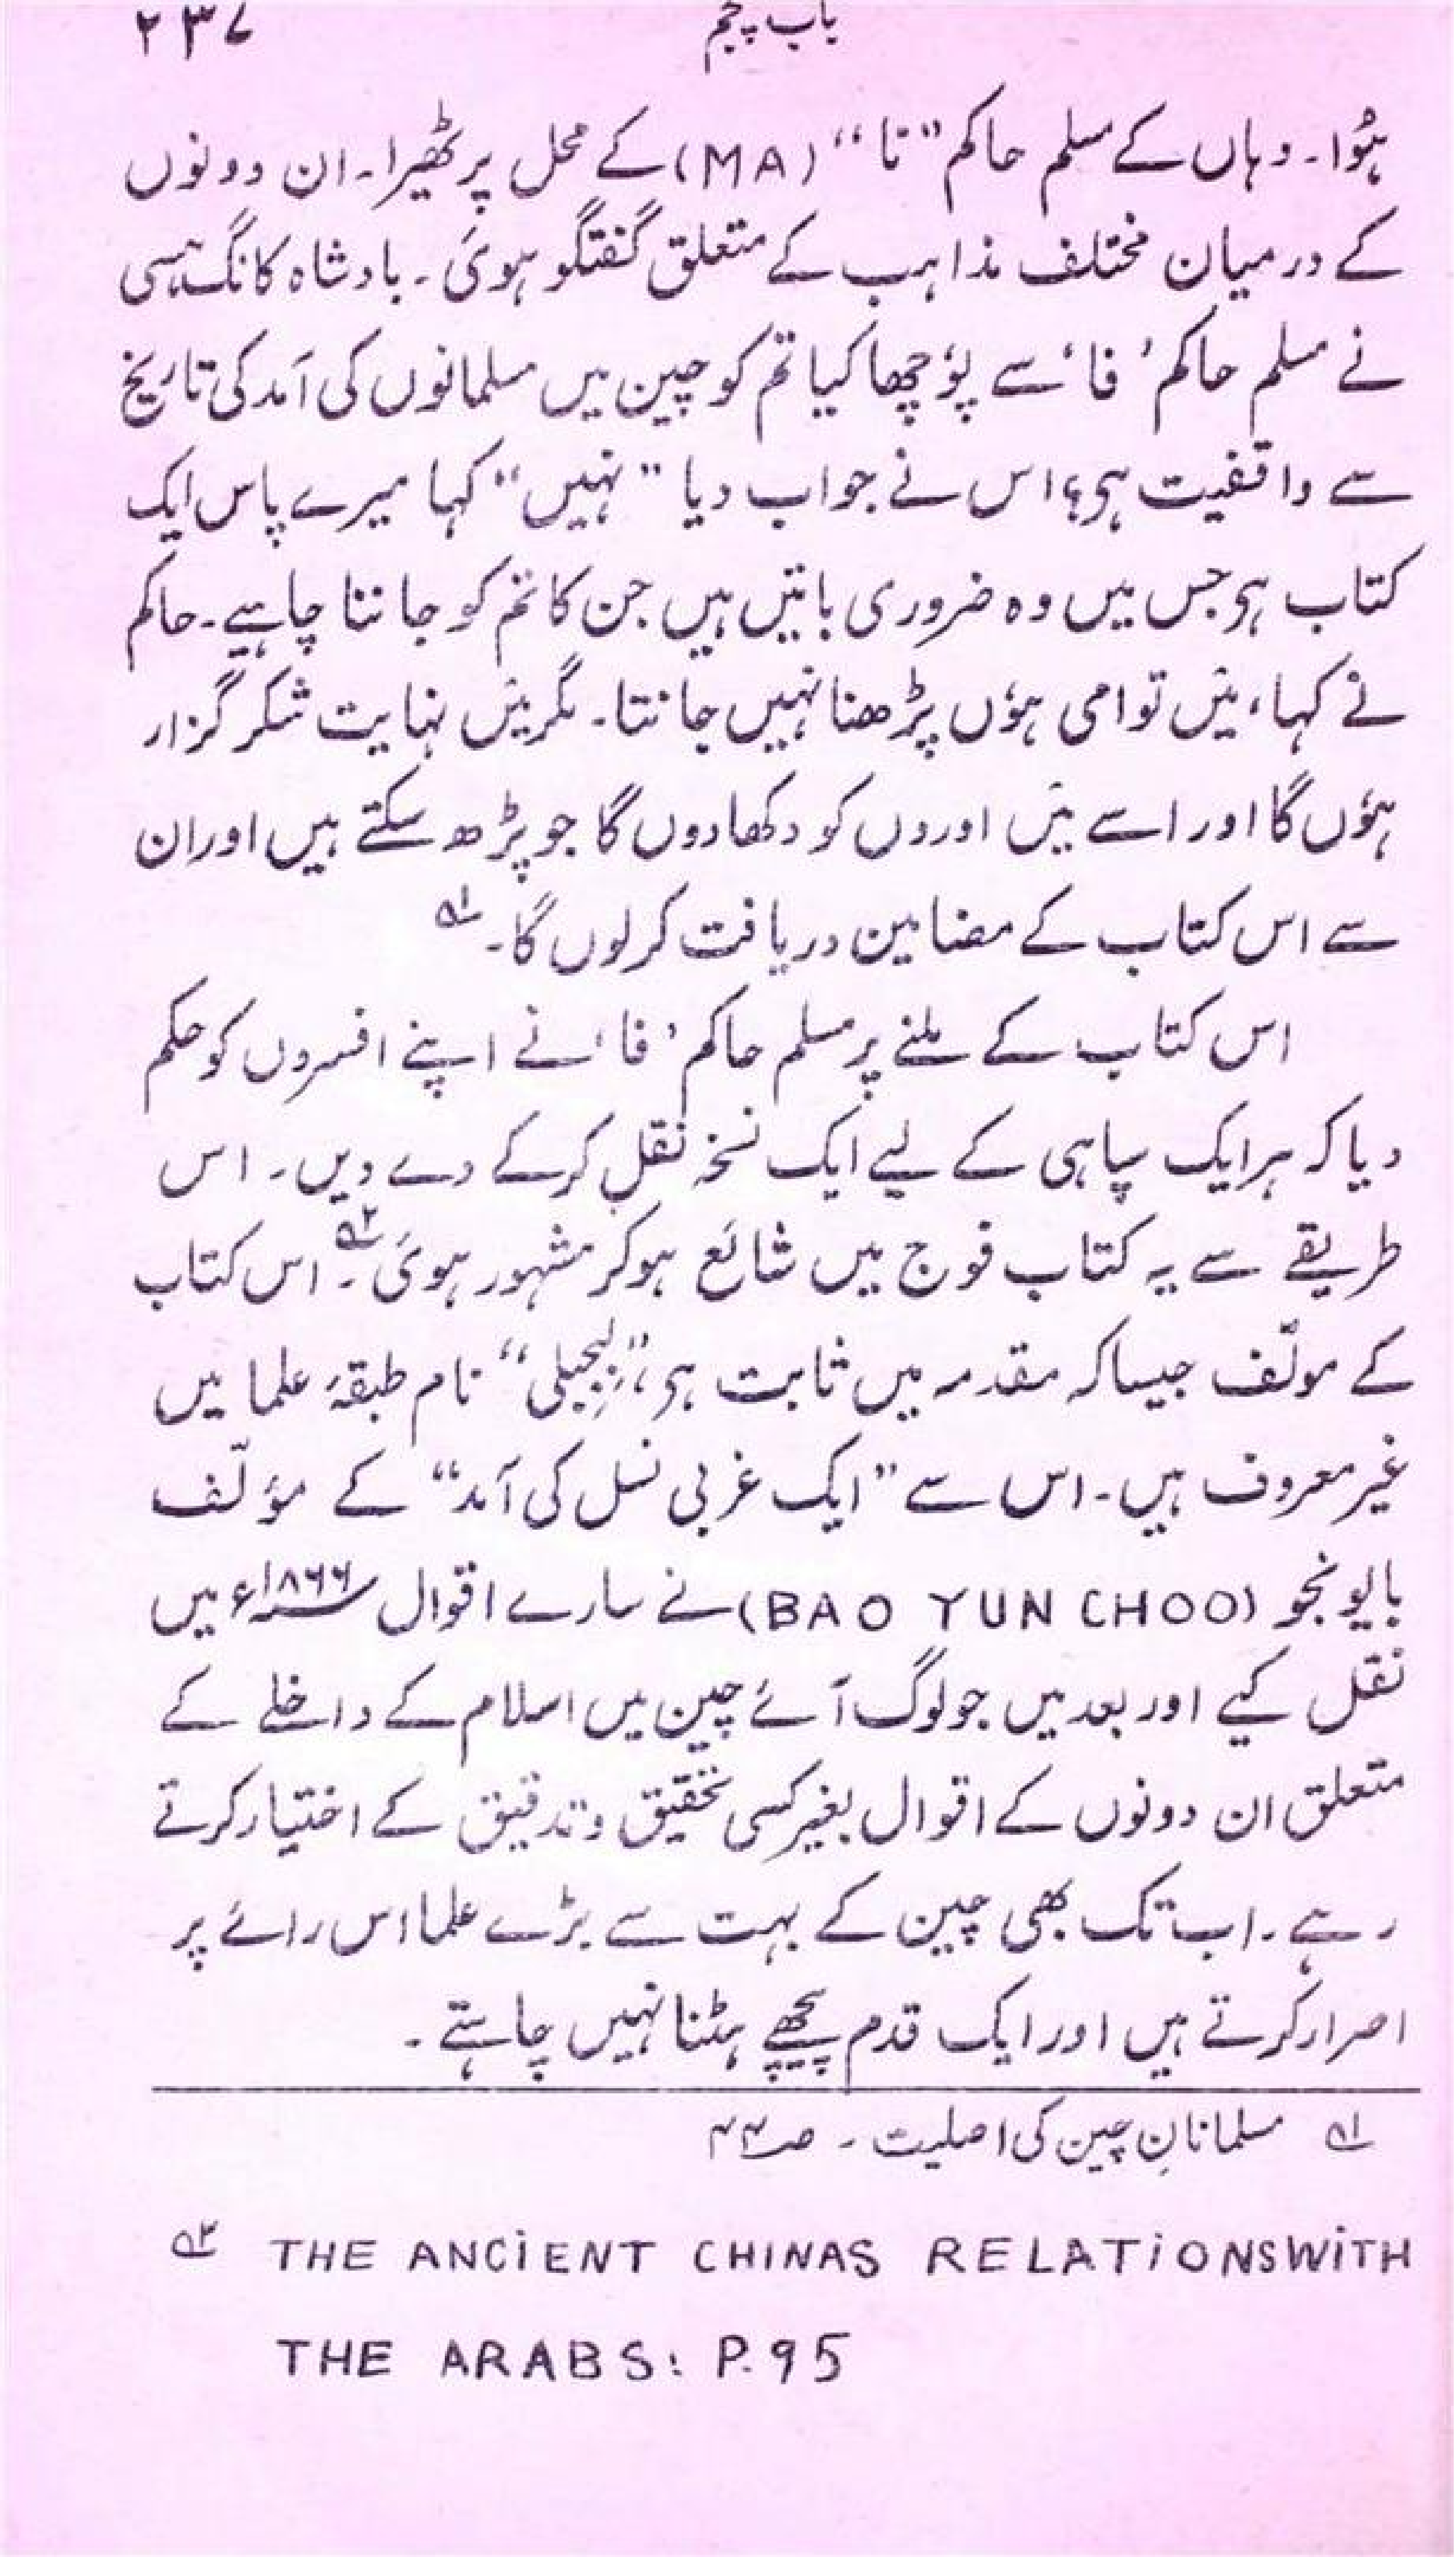 باب پنجم ۲۳۷
ہوٗا۔ وہاں کے مسلم حاکم ”نا“ (MA) کے محل پر ٹھیرا۔ ان دونوں
کے درمیان مختلف مذاہب کے متعلق گفتگو ہوئی۔ بادشاہ کانگ ہسی
نے مسلم حاکم ’فا‘ سے پوٗچھا کیا تم کو چین میں مسلمانوں کی آمد کی تاریخ
سے واقفیت ہی؟ اس نے جواب دیا ”نہیں“ کہا میرے پاس ایک
کتاب ہی جس میں وہ ضروری باتیں ہیں جن کا تم کو جاننا چاہیے۔ حاکم
نے کہا، میَں تو امی ہوٗں پڑھنا نہیں جانتا۔ مگر میَں نہایت شکر گزار
ہوٗں گا اور اسے میَں اوروں کو دکھا دوں گا جو پڑھ سکتے ہیں اور ان
سے اس کتاب کے مضامین دریافت کرلوں گا۔ ؎۱
اس کتاب کے ملنے پر مسلم حاکم ’فا‘ نے اپنے افسروں کو حکم
دیا کہ ہر ایک سپاہی کے لیے ایک نسخہ نقل کرکے دے دیں۔ اس
طریقے سے یہ کتاب فوج میں شائع ہوکر مشہور ہوئی ؎۲۔ اس کتاب
کے مولّف جیسا کہ مقدمہ میں ثابت ہی، نام طبقۂ علما میں
غیر معروف ہیں۔ اس سے ”ایک غربی نسل کی آمد“ کے مؤلّف
بایونجو (BAO YUN CHOO) نے سارے اقوال ۱۸۶۶ء میں
نقل کیے اور بعد میں جو لوگ آئے چین میں اسلام کے داخلے کے
متعلق ان دونوں کے اقوال بغیر کسی تحقیق و تدقیق کے اختیار کرتے
رہے۔ اب تک بھی چین کے بہت سے بڑے علما اس رائے پر
اصرار کرتے ہیں اور ایک قدم پیچھے ہٹنا نہیں چاہتے۔
؎۱ مسلمانانِ چین کی اصلیت۔ ص
؎۲ THE ANCiENT CHINAS RELATiONSWiTH
THE ARABS: P.95